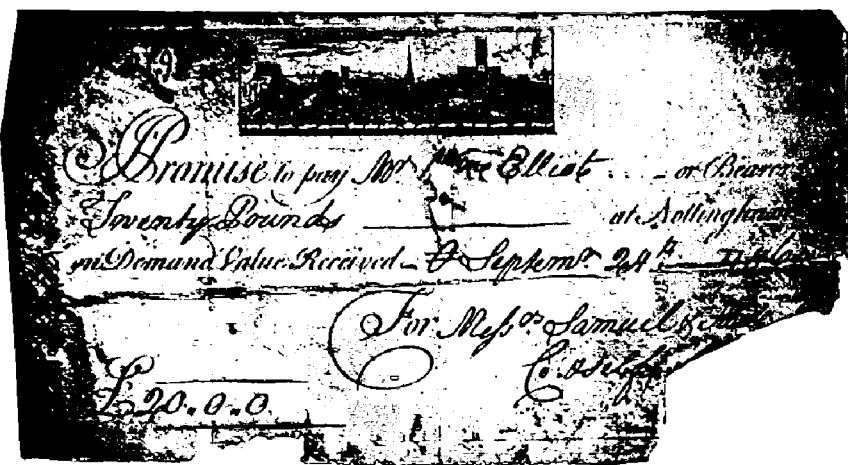 Promise to pay Mr Elliot or Bearer
Twenty Pounds at Nottingham
on Demand Value Received Septemr. 24th
For Messrs Samuel
£20.0.0.